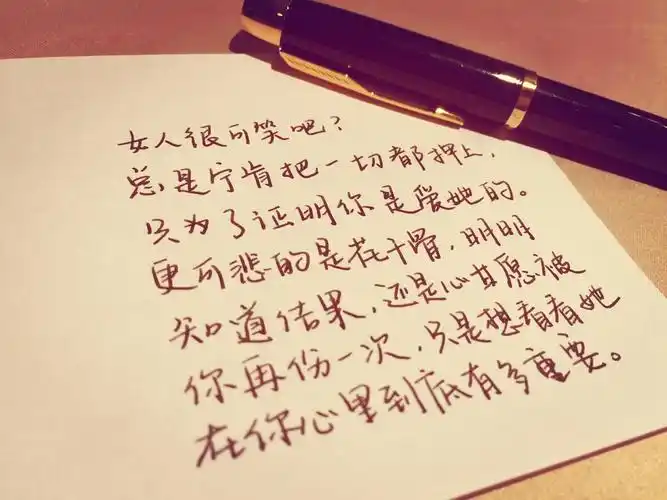 女人很可笑吧？
总是宁肯把一切都押上，
只为了证明你是爱她的。
更可悲的是花千骨，明明
知道结果，还是心甘愿被
你再伤一次，只是想看看她
在你心里到底有多重要。